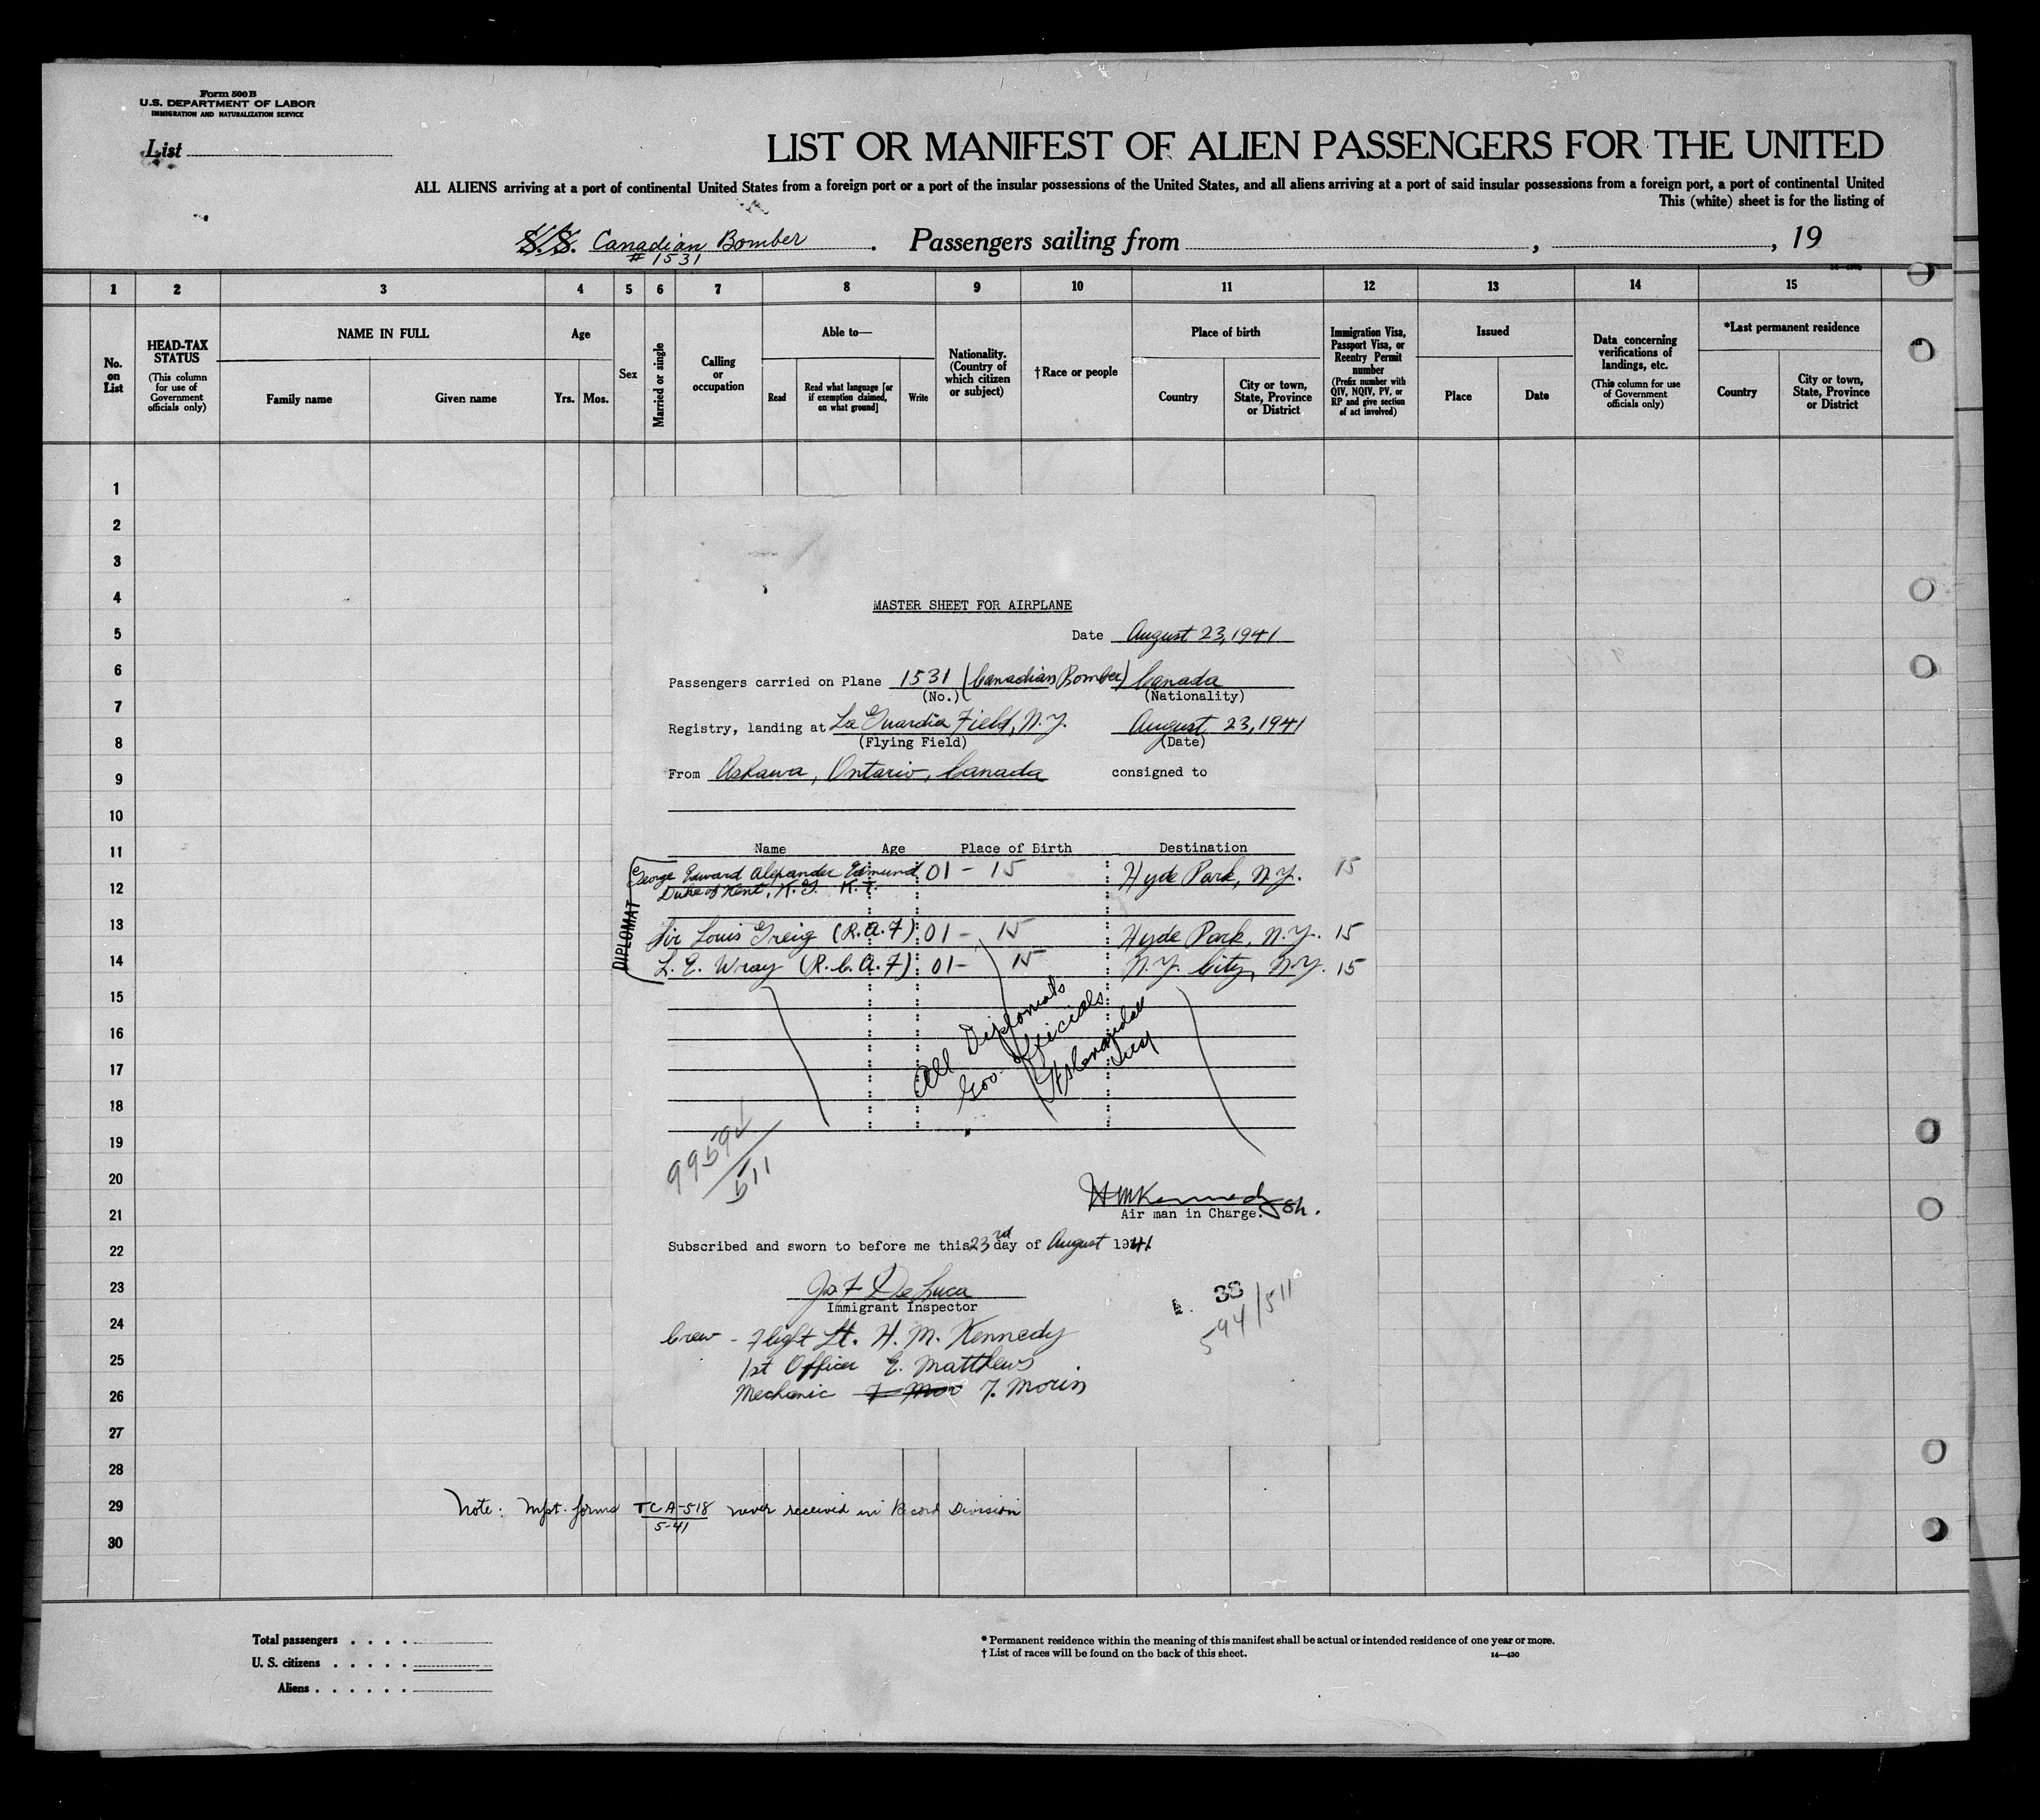 Form 500B
U.S. DEPARTMENT OF LABOR
IMMIGRATION AND NATURALIZATION SERVICE
List
LIST OR MANIFEST OF ALIEN PASSENGERS FOR THE UNITED
ALL ALIENS arriving at a port of continental United States from a foreign port or a port of the insular possessions of the United States, and all aliens arriving at a port of said insular possessions from a foreign port, a port of continental United
This (white) sheet is for the listing of
S.S. Canadian Bomber . Passengers sailing from , , 19
# 1531
1 2 3 4 5 6 7 8 9 10 11 12 13 14 15
No. on List
HEAD-TAX STATUS
(This column for use of Government officials only)
NAME IN FULL
Family name
Given name
Age
Yrs. Mos.
Sex
Married or single
Calling or occupation
Able to—
Read
Read what language [or if exemption claimed, on what ground]
Write
Nationality. (Country of which citizen or subject)
†Race or people
Place of birth
Country
City or town, State, Province or District
Immigration Visa, Passport Visa, or Reentry Permit number
(Prefix number with QIV, NQIV, PV, or RP and give section of act involved)
Issued
Place
Date
Data concerning verifications of landings, etc.
(This column for use of Government officials only)
*Last permanent residence
Country
City or town, State, Province or District
1
2
3
4
5
6
7
8
9
10
11
12
13
14
15
16
17
18
19
20
21
22
23
24
25
26
27
28
29
30
MASTER SHEET FOR AIRPLANE
Date August 23, 1941
Passengers carried on Plane 1531 (Canadian Bomber) Canada
(No.) (Nationality)
Registry, landing at La Guardia Field, N.Y. August 23, 1941
(Flying Field) (Date)
From Oshawa, Ontario, Canada consigned to
Name Age Place of Birth Destination
DIPLOMAT
George Edward Alexander Edmund 01 - 15 Hyde Park, N.Y. 15
Duke of Kent, K.G. K.T.
Sir Louis Greig (R.A.F) 01 - 15 Hyde Park, N.Y. 15
L. E. Wray (R.C.A.F) 01 - 15 N.Y. City, N.Y. 15
All Diplomats
Gov. Officials
99594/511
H M Kennedy
Air man in Charge.
Subscribed and sworn to before me this 23rd day of August 1941
Jos F De Luca
Immigrant Inspector
38
594/511
Crew - Flight Lt. H. M. Kennedy
1st Officer E. Matthews
Mechanic F. Mor F. Morin
Note: Mfst. forms TCA-518 never received in Record Division
5-41
Total passengers . . . .
U. S. citizens . . . . .
Aliens . . . . . .
* Permanent residence within the meaning of this manifest shall be actual or intended residence of one year or more.
† List of races will be found on the back of this sheet.
14—430